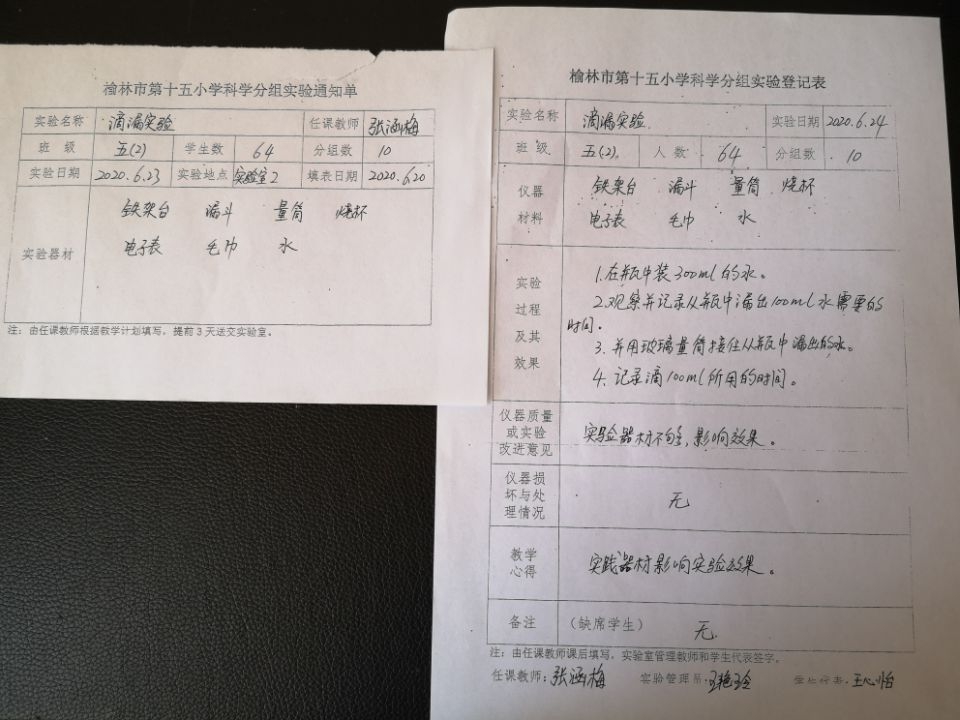 榆林市第十五小学科学分组实验通知单
实验名称 滴漏实验 任课教师 张涵梅
班 级 五(2) 学生数 64 分组数 10
实验日期 2020.6.23 实验地点 实验室2 填表日期 2020.6.20
实验器材
铁架台 漏斗 量筒 烧杯
电子表 毛巾 水
注：由任课教师根据教学计划填写，提前3天送交实验室。
榆林市第十五小学科学分组实验登记表
实验名称 滴漏实验 实验日期 2020.6.24
班 级 五(2) 人 数 64 分组数 10
仪器材料
铁架台 漏斗 量筒 烧杯
电子表 毛巾 水
实验过程及其效果
1.在瓶中装300ml的水。
2.观察并记录从瓶中漏出100ml水需要的
时间。
3.并用玻璃量筒接住从瓶中漏出的水。
4.记录滴100ml所用的时间。
仪器质量或实验改进意见
实验器材不够，影响效果。
仪器损坏与处理情况
无
教学心得
实践器材影响实验效果。
备注 （缺席学生） 无.
注：由任课教师课后填写，实验室管理教师和学生代表签字。
任课教师：张涵梅 实验管理员：王艳玲 学生代表：王心怡